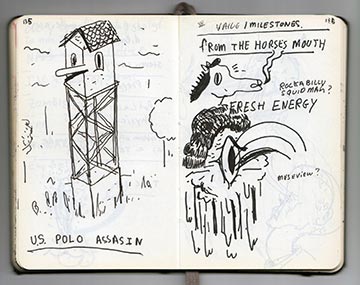 135
US. POLO ASSASIN
VAIGE / MILESTONES.
FROM THE HORSES MOUTH
ROCKABILLY
SQUID MAN?
FRESH ENERGY